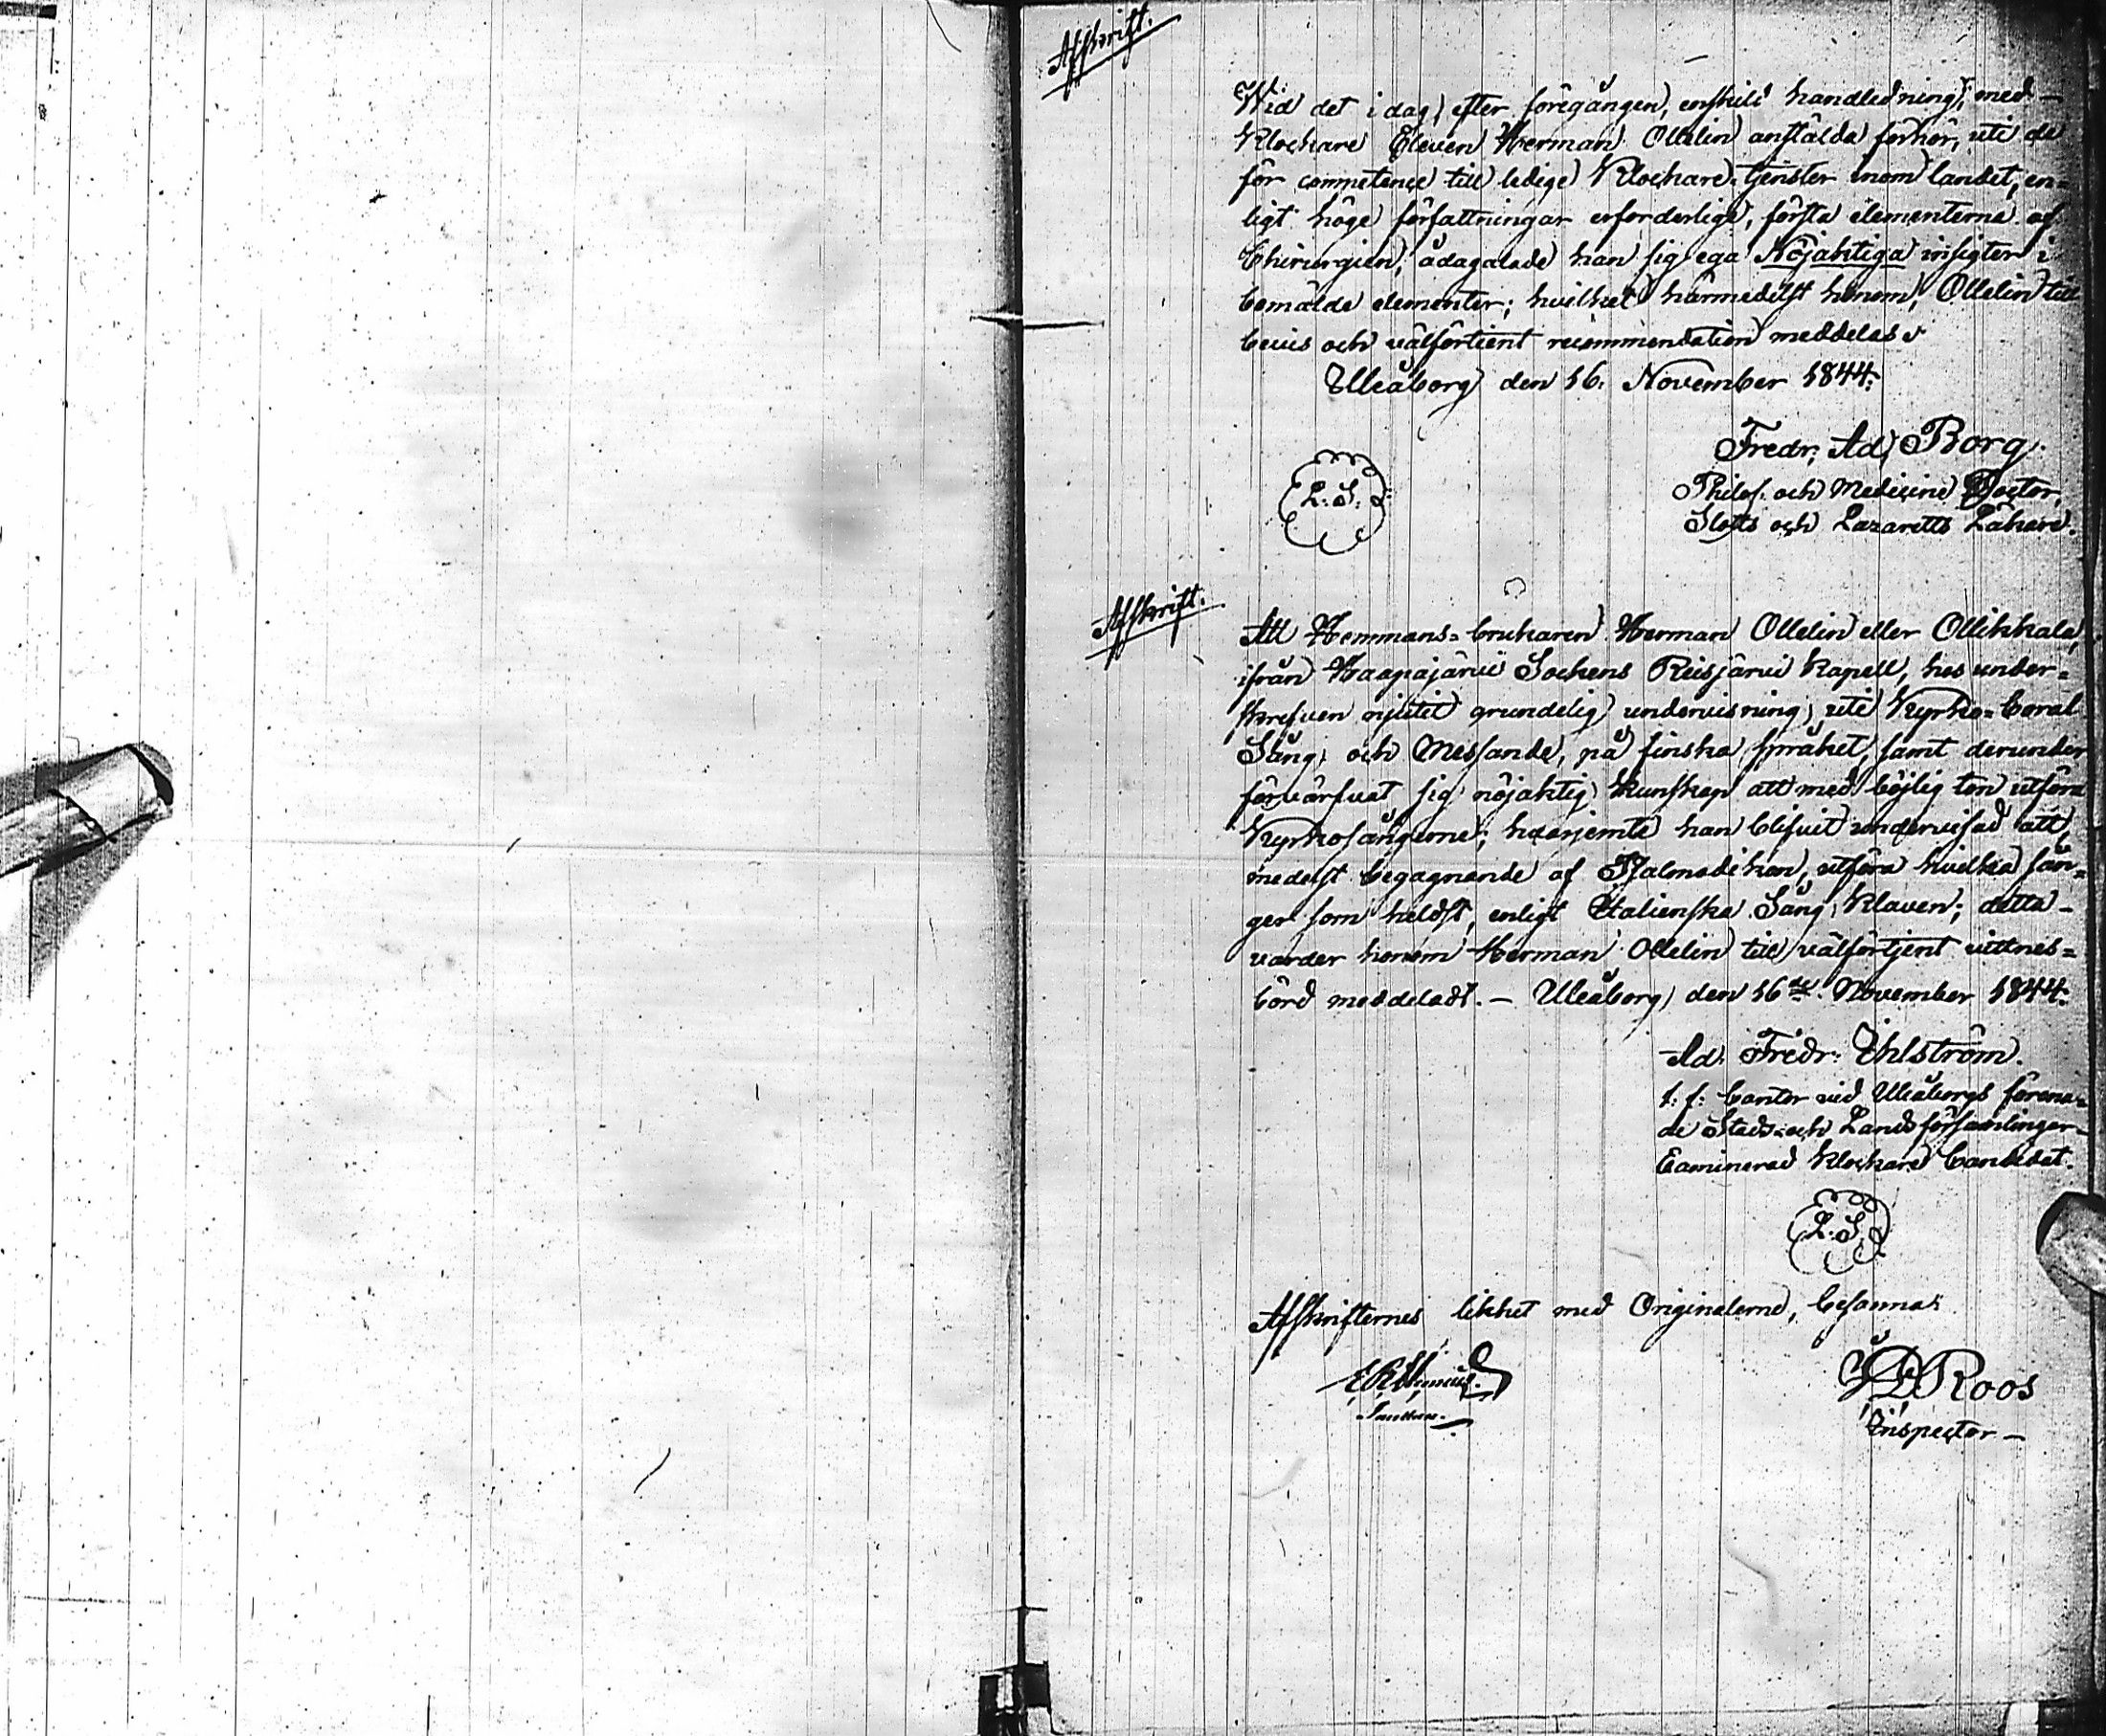 Afskrift.
Wid det i dag, efter föregången, enskild handledning, med
Klockare Eleven Herman Ollelin anstälda förhör, uti de
för competence till ledige Klockare-tjenster inom landet, en-
ligt höge författningar erforderlige, första elementerne af
Chirurgien, ådagalade han sig ega Nöjaktiga insigter i
bemälde elementer; hvilket härmedelst honom, Ollelin till
bevis och välförtient recommendation meddelas
Uleåborg den 16. November 1844.
Fredr. Ad. Borg.
L. S.
Philos. och Medicine Doctor,
Slotts och Lazaretts Läkare.
Afskrift.
Att Hemmans-brukaren Herman Ollelin eller Ollikkala,
ifrån Haapajärvi Sockens Reisjärvi Kapell, hos under-
skrefven njutit grundelig undervisning, uti Kyrko-Coral
Sång, och Messande, på finska språket, samt derunder
förvärfvat sig nöjaktig kunskap att med böjlig ton utföra
Kyrkosångerne; hvarjemte han blifvit undervisad att,
medelst begagnande af Psalmodikon, utföra hvilka sån-
ger som heldst, enligt Italienska Sång Klaven; detta
varder honom Herman Ollelin till välförtjent vittnes-
börd meddeladt. — Uleåborg, den 16de November 1844.
Ad. Fredr. Ihlström.
t. f. Cantor vid Uleåborgs förena-
de Stads- och Landsförsamlingar
Examinerad Klockare Candidat.
L. S.
Afskrifternes likhet med Originalerne, besanna:
Roos
Inspector